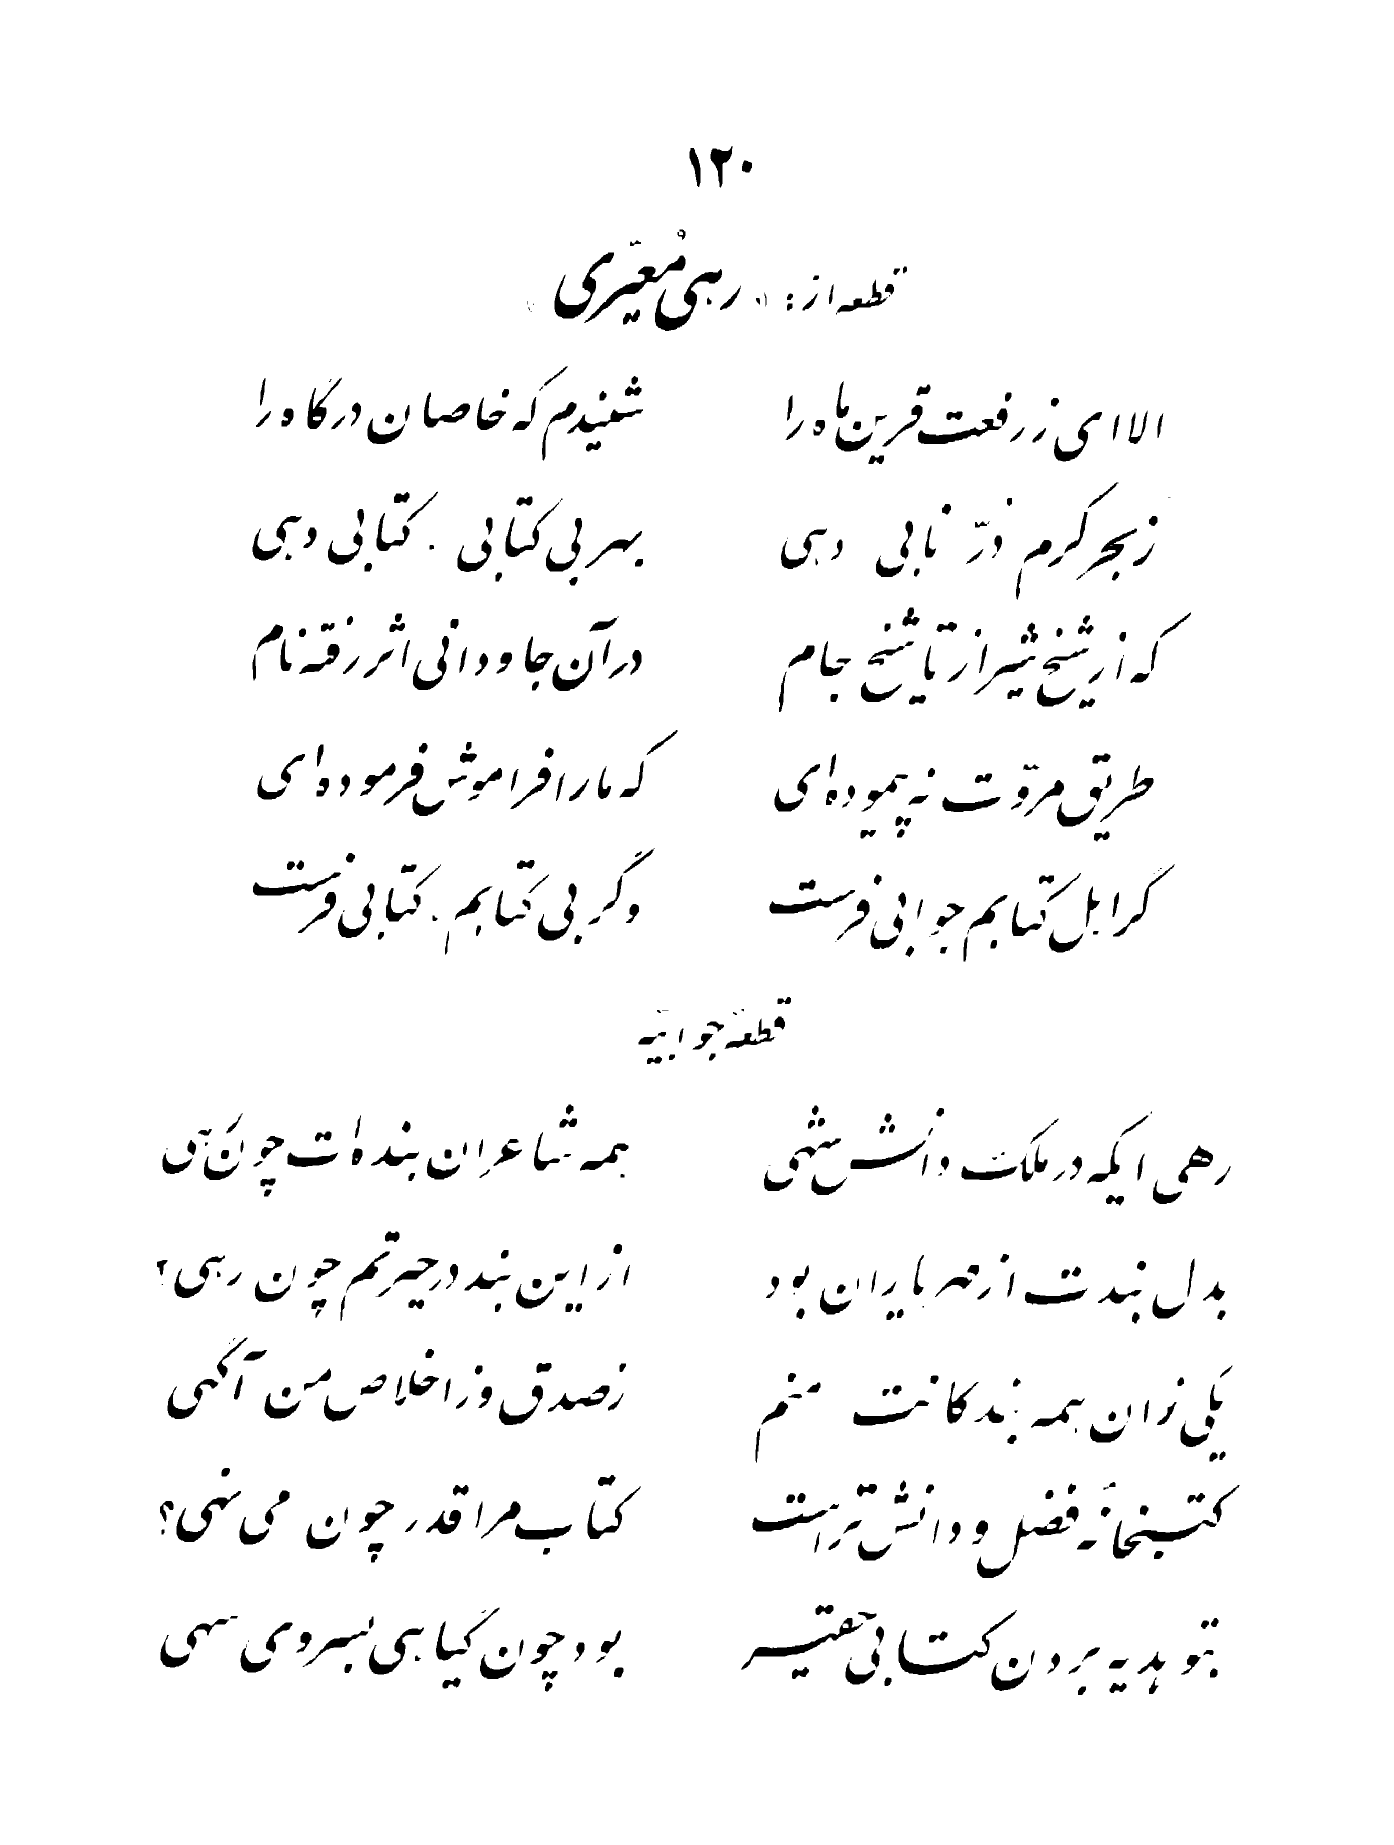 ۱۲۰
قطعه از: «رهی مُعیّری»
الا ای ز رفعت قرین ماه را شنیدم که خاصان درگاه را
ز بحر کرم دُرّ نابی دهی بهر بی کتابی . کتابی دهی
که از شیخ شیراز تا شیخ جام در آن جاودانی اثر رفته نام
طریق مروّت نه پیموده‌ای که ما را فراموش فرموده‌ای
گر اهل کتابم جوابی فرست وگر بی کتابم . کتابی فرست
قطعهٔ جوابیّه
رهی ایکه در ملکت دانش شهی همه شاعران بنده‌ات چون رهی
بدل بندت از مهر یاران بود از این بند در حیرتم چون رهی؟
یکی زان همه بندگانت منم ز صدق و ز اخلاص من آگهی
کتبخانهٔ فضل و دانش تراست کتاب مرا قدر چون می نهی؟
بتو هدیه بردن کتابی حقیر بود چون گیاهی بسروی سهی